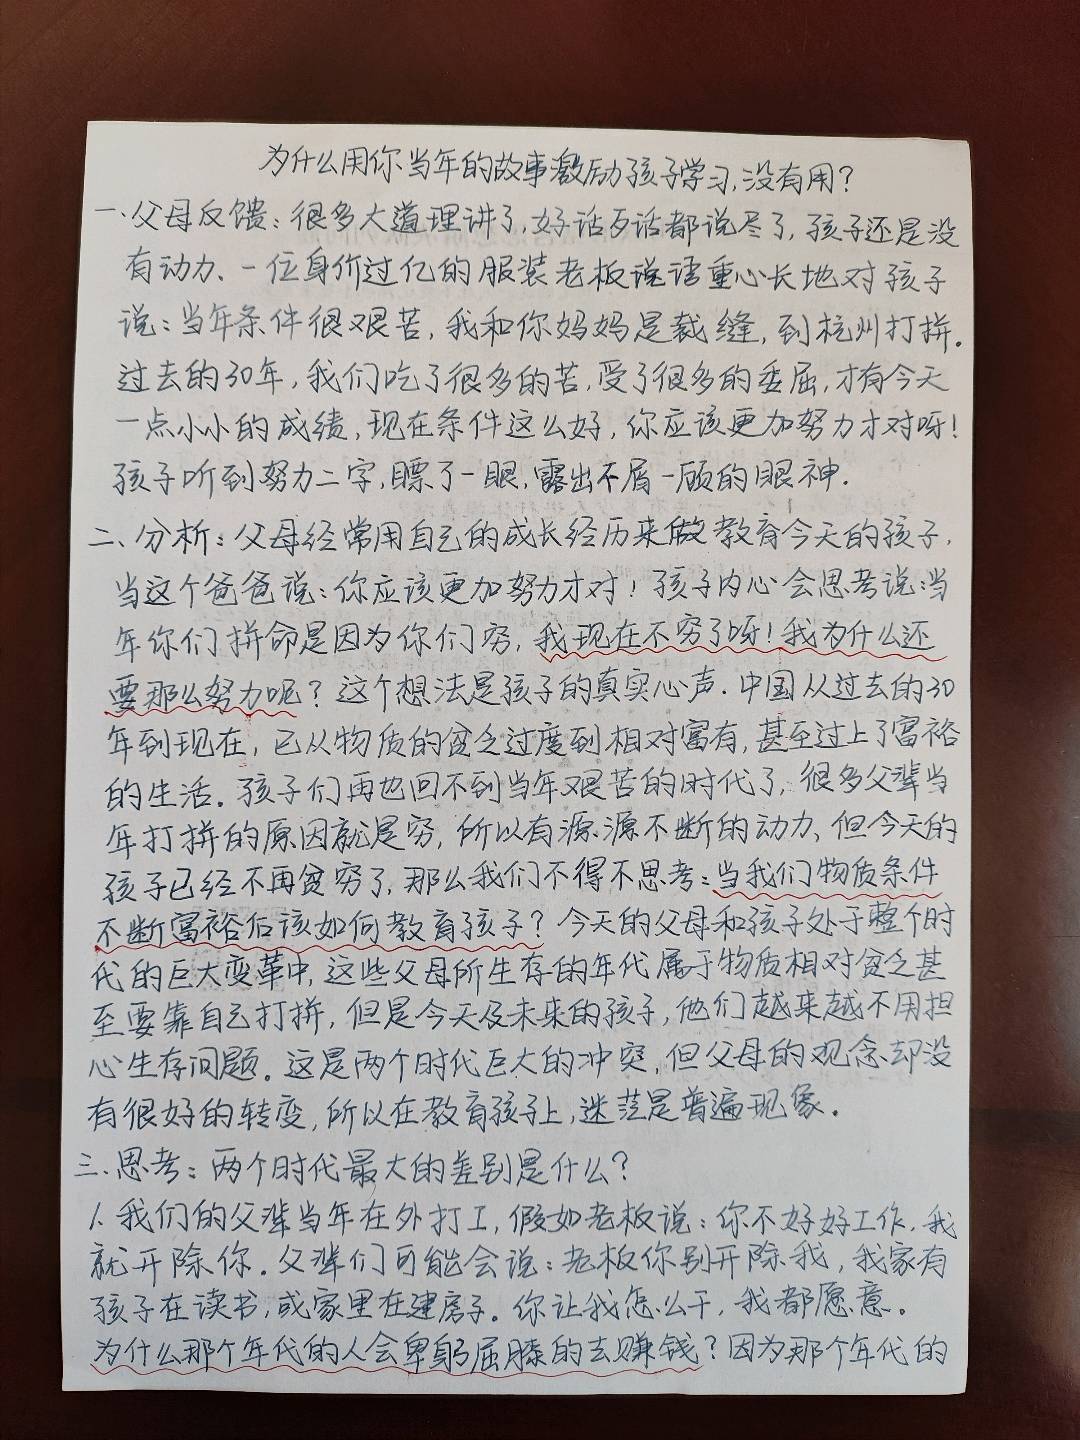 为什么用你当年的故事激励孩子学习,没有用?
一.父母反馈:很多大道理讲了,好话歹话都说尽了,孩子还是没
有动力、一位身价过亿的服装老板说语重心长地对孩子
说:当年条件很艰苦,我和你妈妈是裁缝,到杭州打拼.
过去的30年,我们吃了很多的苦,受了很多的委屈,才有今天
一点小小的成绩,现在条件这么好,你应该更加努力才对呀!
孩子听到努力二字,瞟了一眼,露出不屑一顾的眼神.
二、分析:父母经常用自己的成长经历来做教育今天的孩子,
当这个爸爸说:你应该更加努力才对!孩子内心会思考说:当
年你们拼命是因为你们穷,我现在不穷了呀!我为什么还
要那么努力呢?这个想法是孩子的真实心声.中国从过去的30
年到现在,已从物质的贫乏过度到相对富有,甚至过上了富裕
的生活。孩子们再也回不到当年艰苦的时代了,很多父辈当
年打拼的原因就是穷,所以有源源不断的动力、但今天的
孩子已经不再贫穷了,那么我们不得不思考:当我们物质条件
不断富裕后该如何教育孩子?今天的父母和孩子处于整个时
代的巨大变革中,这些父母所生存的年代属于物质相对贫乏甚
至要靠自己打拼,但是今天及未来的孩子,他们越来越不用担
心生存问题。这是两个时代巨大的冲突,但父母的观念却没
有很好的转变,所以在教育孩子上,迷茫是普遍现象.
三.思考:两个时代最大的差别是什么?
1.我们的父辈当年在外打工,假如老板说:你不好好工作,我
就开除你.父辈们可能会说:老板你别开除我,我家有
孩子在读书,或家里在建房子。你让我怎么干,我都愿意.
为什么那个年代的人会卑躬屈膝的去赚钱?因为那个年代的